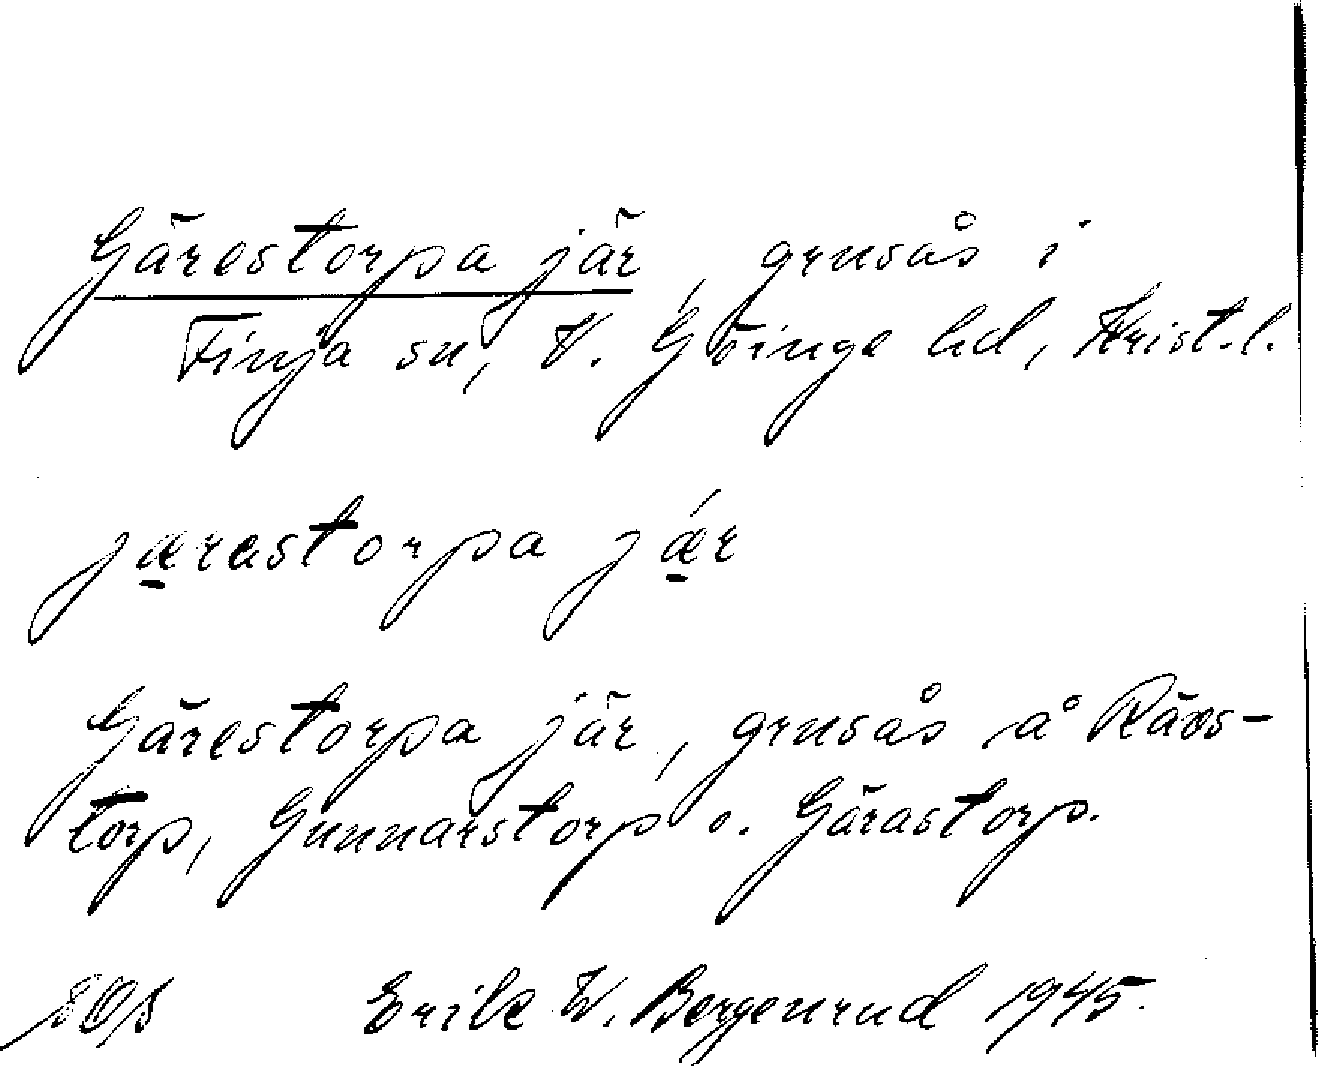 Gärestorpa jär, grusås i
Finja sn, V. Göinge hd, Krist.l.
jærastorpa jǽr
Gärestorpa jär, grusås å Rävs-
torp, Gunnarstorp o. Gärastorp.
Erik W. Bergenrud 1945.